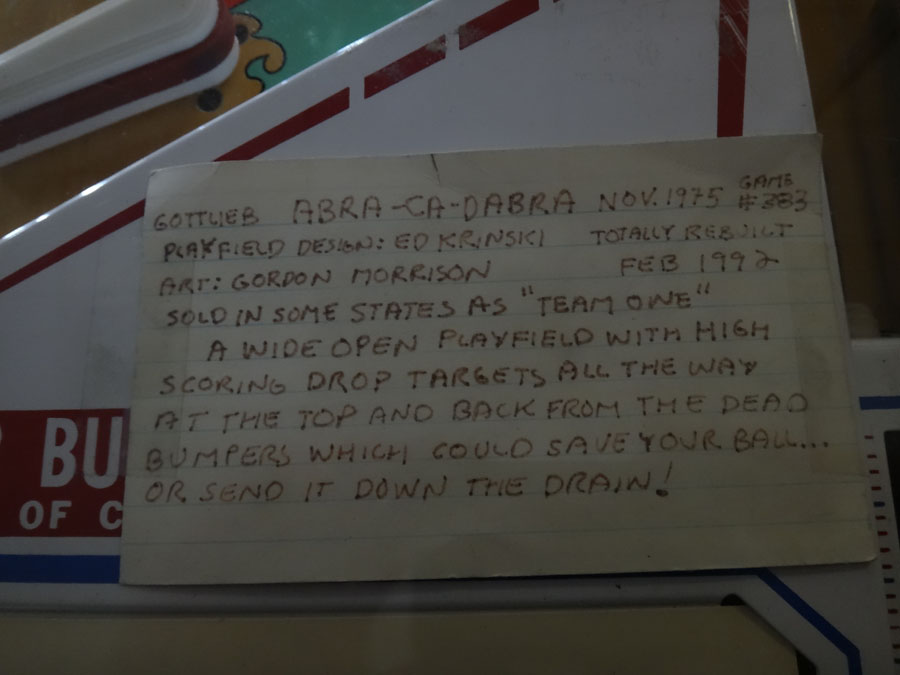 GOTTLIEB ABRA-CA-DABRA NOV. 1975 GAME #383
PLAYFIELD DESIGN: ED KRINSKI TOTALLY REBUILT
ART: GORDON MORRISON FEB 1992
SOLD IN SOME STATES AS "TEAM ONE"
A WIDE OPEN PLAYFIELD WITH HIGH
SCORING DROP TARGETS ALL THE WAY
AT THE TOP AND BACK FROM THE DEAD
BUMPERS WHICH COULD SAVE YOUR BALL...
OR SEND IT DOWN THE DRAIN!
BU
OF C